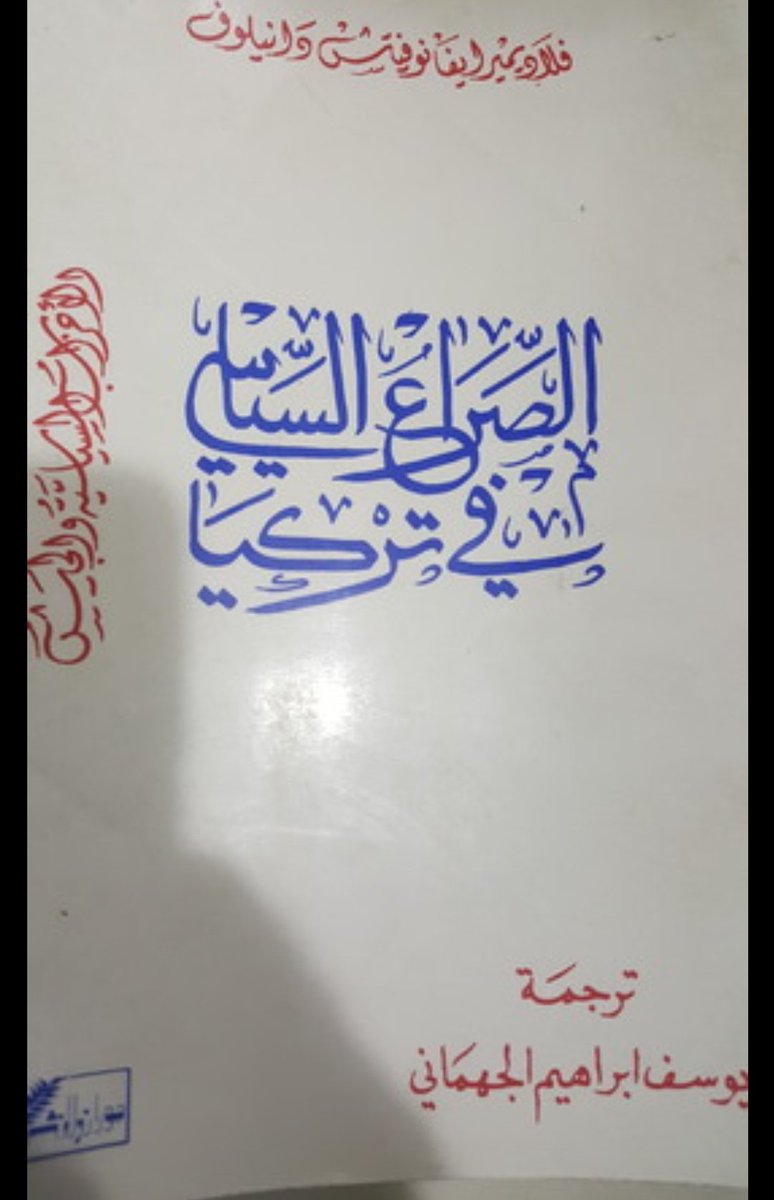 فلاديمير ايفانوفيتش دانيلوف
الصِّرَاعُ السِّيَاسي
في تركيَا
والأحزاب السياسيَّة والجيش
ترجمَة
يوسف ابراهيم الجهمَاني